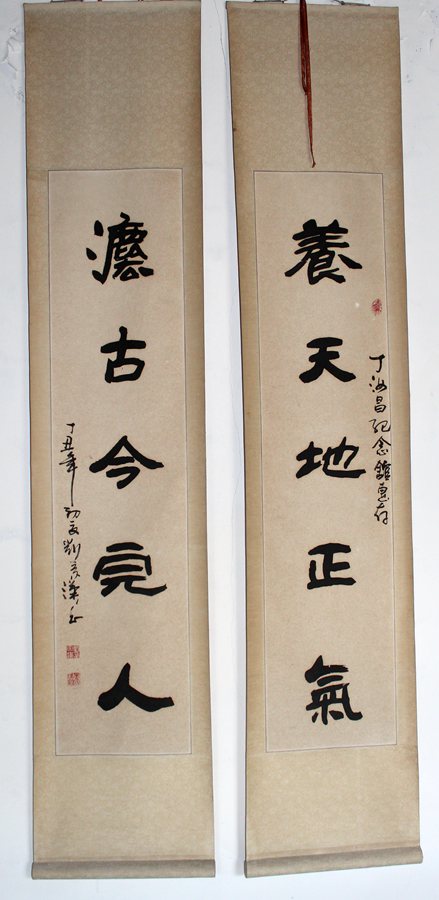 養天地正氣
丁汝昌紀念館惠存
灋古今完人
丁丑年初夏劉